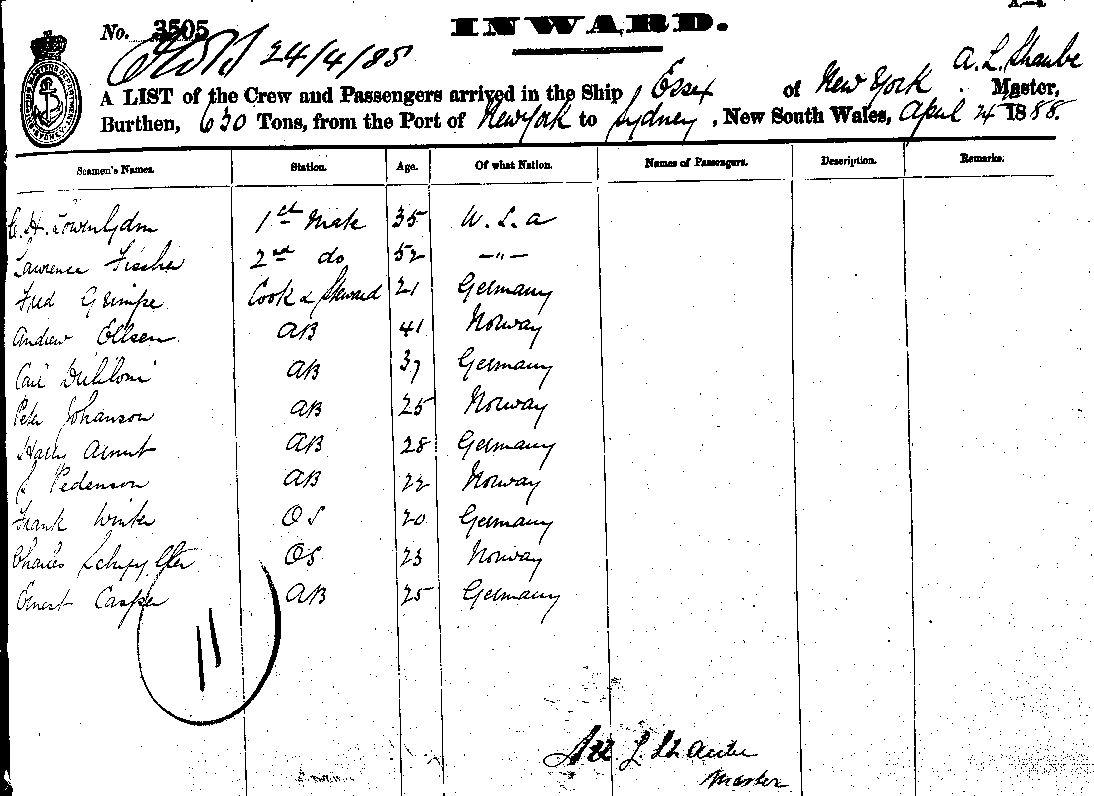 INWARD.
No. 3505
24/4/88
A. L. Shaube
A LIST of the Crew and Passengers arrived in the Ship Essix of New York Master,
Burthen, 630 Tons, from the Port of New York to Sydney, New South Wales, April 24 1888.
Seamen's Names. Station. Age. Of what Nation. Names of Passengers. Description. Remarks.
C. H. 1st Mate 35 U. S. a
Lawrence Fischer 2nd do 52 — " —
Fred Grimpe Cook & Steward 21 Germany
Andrew Ellsen AB 41 Norway
Carl AB 37 Germany
Peter Johanson AB 25 Norway
Harry AB 28 Germany
Pedenson AB 22 Norway
Frank Winter OS 20 Germany
Charles OS 23 Norway
Ernest Casper AB 25 Germany
11
Master